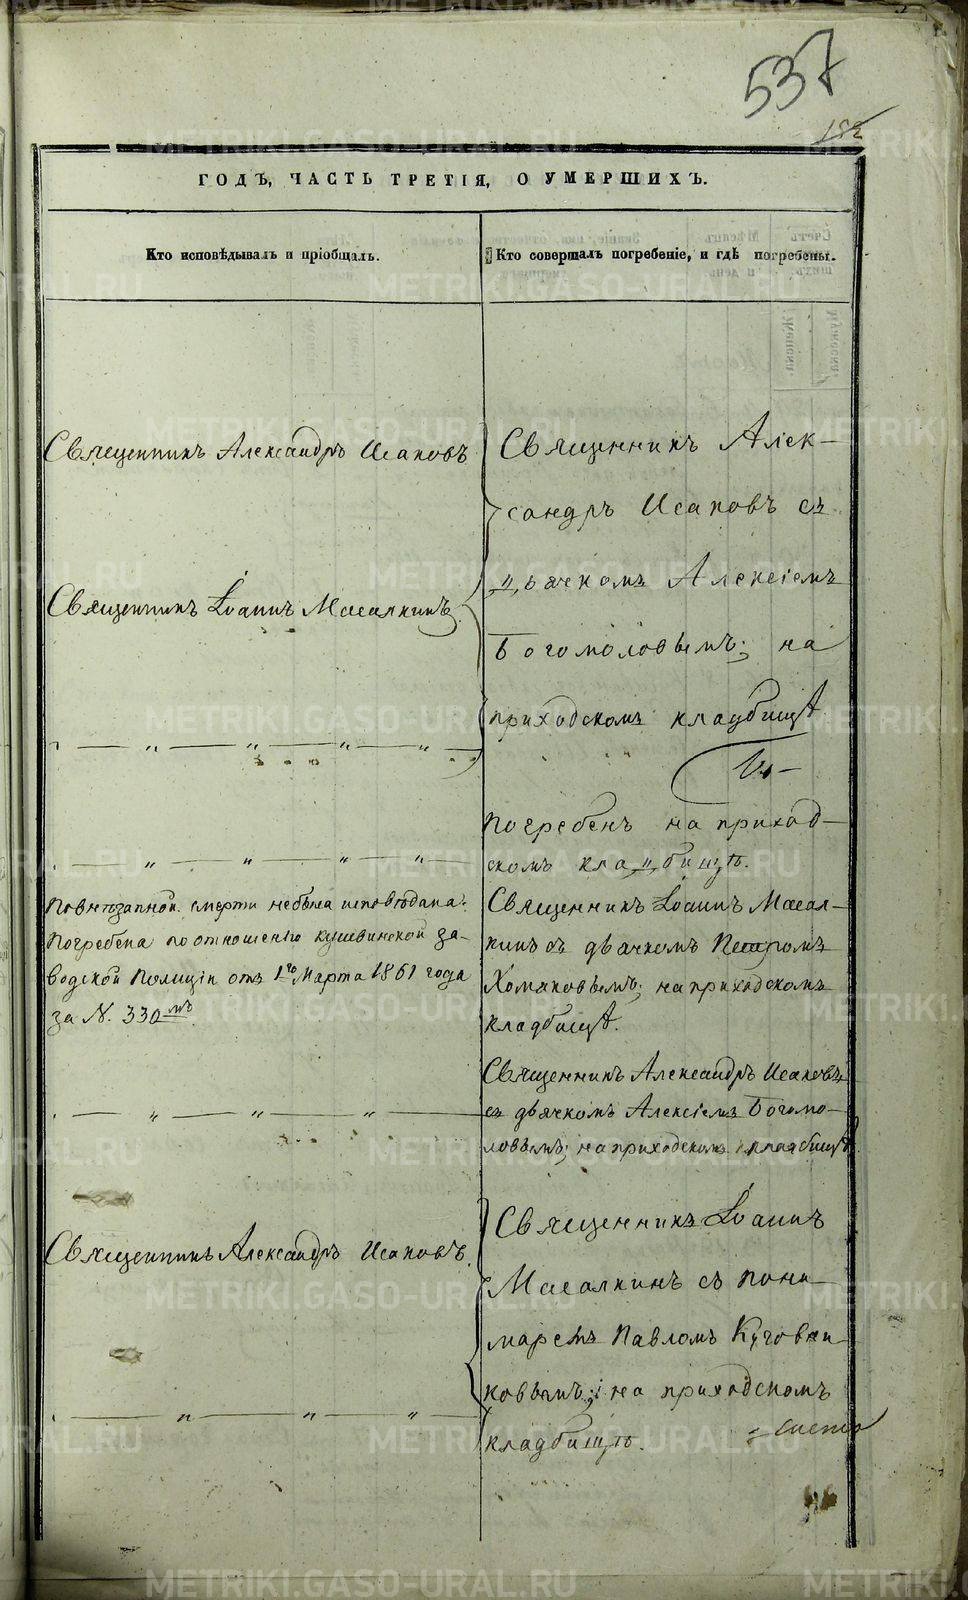 537
182
ГОДЪ, ЧАСТЬ ТРЕТІЯ, О УМЕРШИХЪ.
Кто исповѣдывалъ и пріобщалъ.
Кто совершалъ погребеніе, и гдѣ погребены.
Священникъ Александръ Исаковъ
Священникъ Іоаннъ Масалкинъ
Повнѣзапной смерти небыла исповѣдана.
Погребена поотношенію кушвинской за-
водской Полиціи отъ 1го Марта 1861 года
за N. 330мъ
Священникъ Александръ Исаковъ.
Священникъ Алек-
сандръ Исаковъ съ
дьячкомъ Алексіемъ
Богомоловымъ; на
приходскомъ кладбищѣ
Погребенъ на приход-
скомъ кладбищѣ.
Священникъ Іоаннъ Масал-
кинъ съ дьячкомъ Петромъ
Хомяковымъ; на приходскомъ
кладбищѣ.
Священникъ Александръ Исаковъ
съ дьячкомъ Алексіемъ Богомо-
ловымъ; на приходскомъ кладбищѣ
Священникъ Іоаннъ
Масалкинъ съ поно-
маремъ Павломъ
ковымъ; на приходскомъ
кладбищѣ.
METRIKI.GASO-URAL.RU